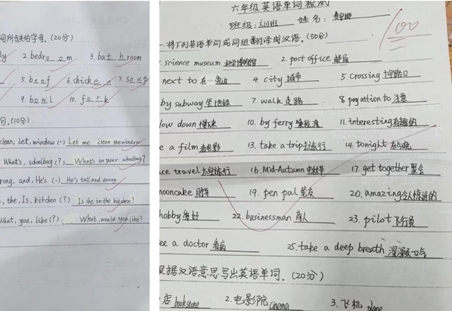 2. bedroom 3. bathroom
5. beef 6. chicken 7. soup
9. bowl 10. fork
句.(20分)
clean, let, window (.) Let me clean the window
What's, schoolbag (?) What's in your schoolbag?
strong, and, He's (.) He's tall and strong
the, Is, kitchen (?) Is she in the kitchen?
What, you, like (?) What would you like?
六年级英语单词检测
班级: 姓名:
一.将下列英语单词或词组翻译成汉语.(50分)
100
science museum 2. post office 邮局
next to 在…旁边 4. city 城市 5. crossing 十字路口
by subway 坐地铁 7. walk 走路 8. pay attention to 注意
slow down 慢下来 10. by ferry 11. interesting 有趣的
see a film 看电影 13. take a trip 去旅行 14. tonight 在今晚
space travel 太空旅行 16. Mid-Autumn 中秋节 17. get together 聚会
mooncake 月饼 19. pen pal 笔友 20. amazing 令人惊讶的
hobby 爱好 22. businessman 商人 23. pilot 飞行员
see a doctor 看病 25. take a deep breath 深深吸一口气
根据汉语意思写出英语单词.(20分)
店 bookstore 2. 电影院 cinema 3. 飞机 plane